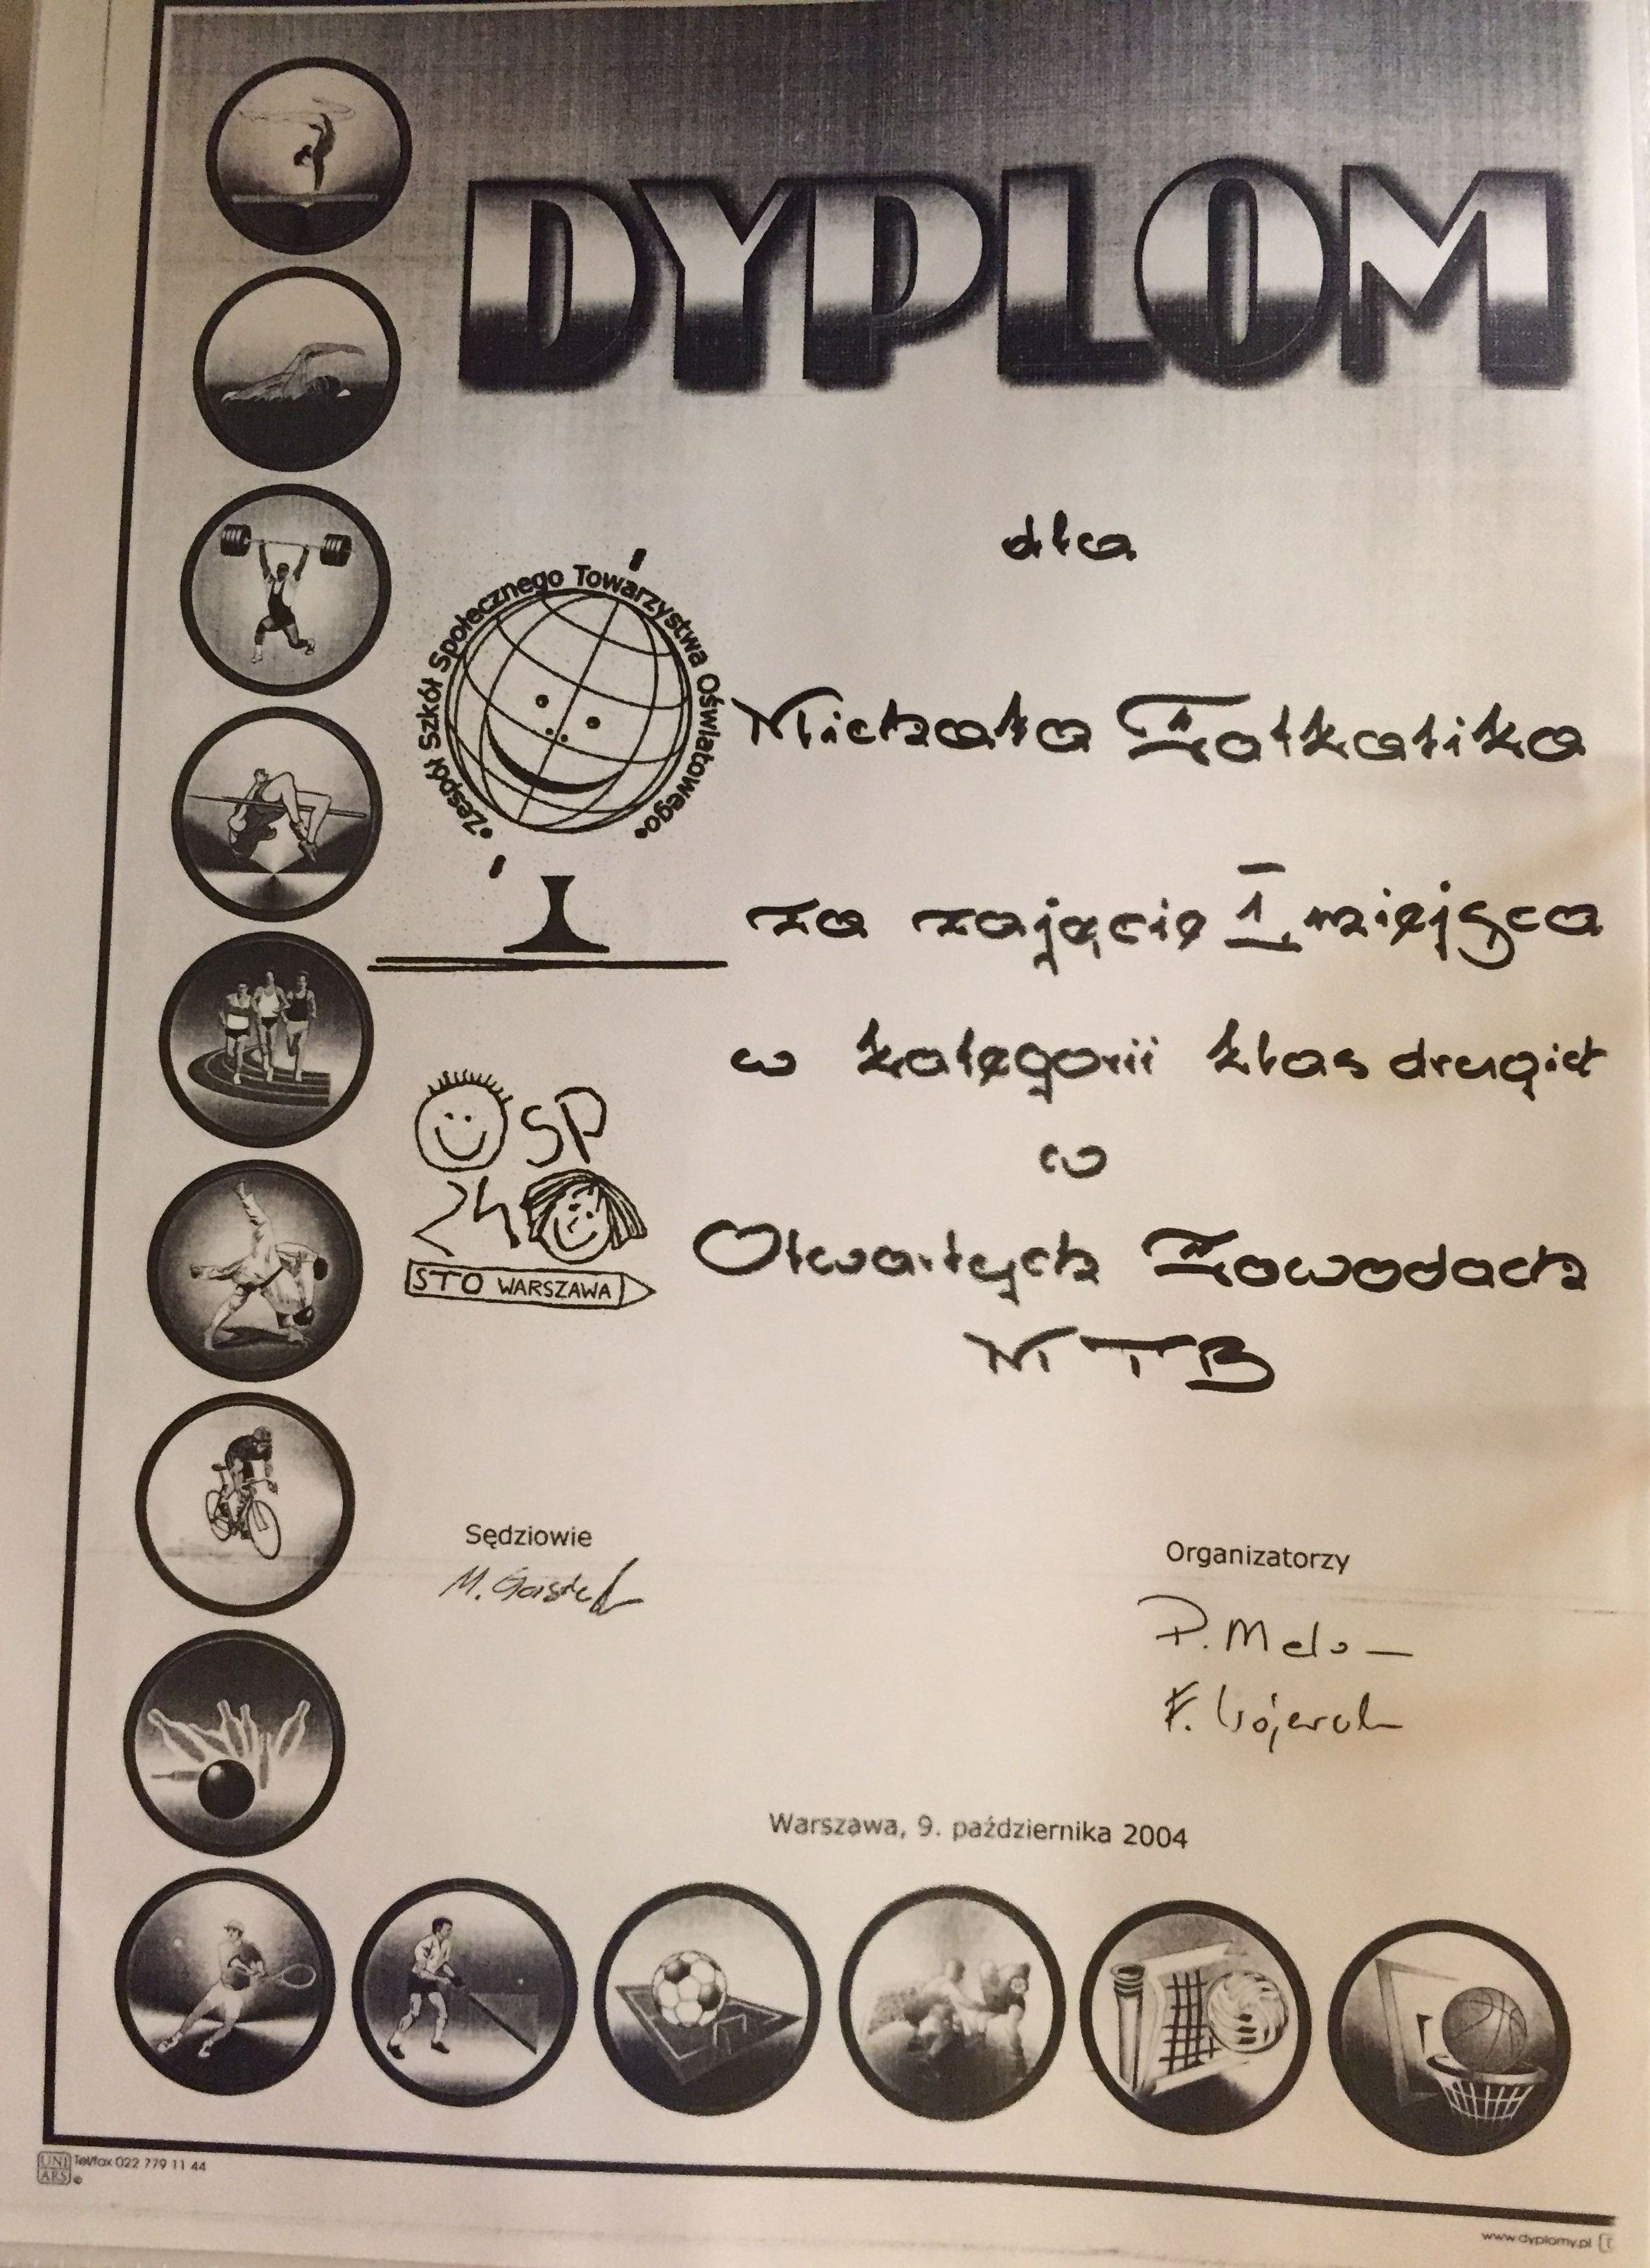 DYPLOM
dla
Zespół Szkół Społecznego Towarzystwa Oświatowego
Michała
za zajęcie I miejsca
w kategorii klas drugich
w
Otwartych Zawodach
MTB
SP
24
STO WARSZAWA
Sędziowie
M.
Organizatorzy
P.
F.
Warszawa, 9. października 2004
UNI
ARS
Tel/fax 022 779 11 44
www.dyplomy.pl